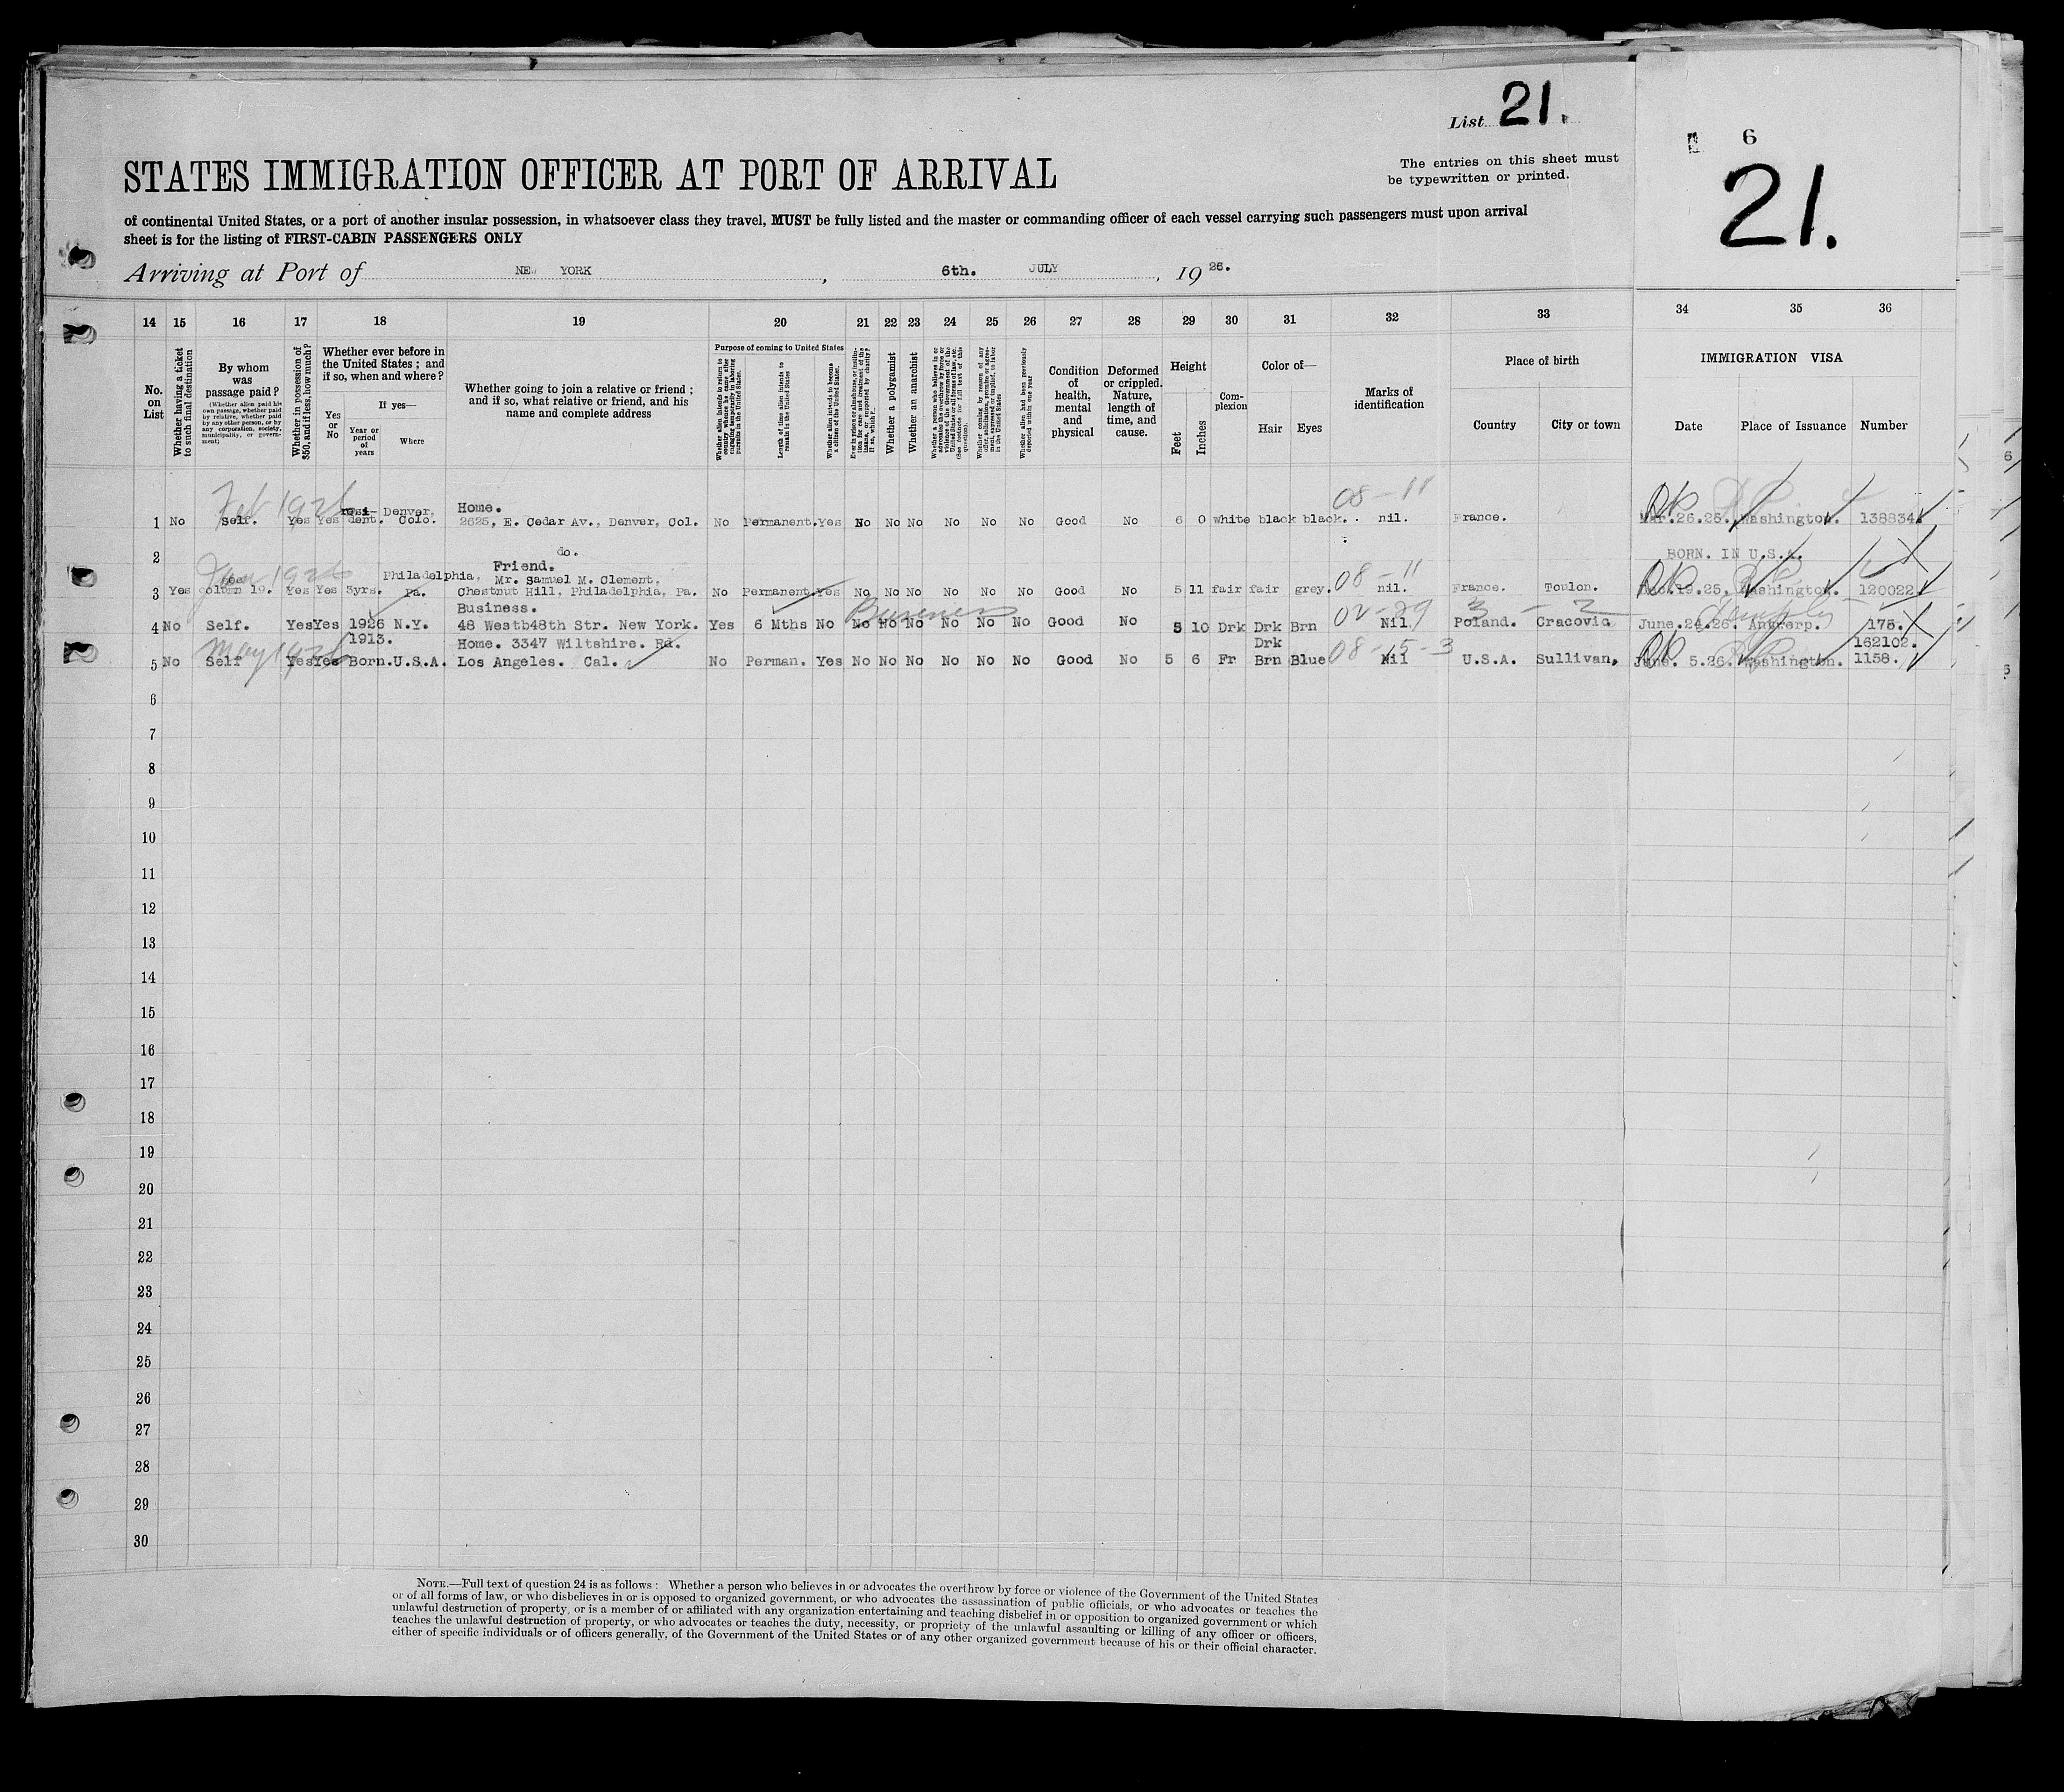 List 21.
6
21.
The entries on this sheet must
be typewritten or printed.
STATES IMMIGRATION OFFICER AT PORT OF ARRIVAL
of continental United States, or a port of another insular possession, in whatsoever class they travel, MUST be fully listed and the master or commanding officer of each vessel carrying such passengers must upon arrival
sheet is for the listing of FIRST-CABIN PASSENGERS ONLY
Arriving at Port of NEW YORK, 6th. JULY, 1926.
14 15 16 17 18 19 20 21 22 23 24 25 26 27 28 29 30 31 32 33 34 35 36
No. on List
Whether having a ticket to such final destination
By whom was passage paid?
(Whether alien paid his own passage, whether paid by relative, whether paid by any other person, or by any corporation, society, municipality, or government)
Whether in possession of $50, and if less, how much?
Whether ever before in the United States; and if so, when and where?
Yes or No
If yes—
Year or period of years
Where
Whether going to join a relative or friend; and if so, what relative or friend, and his name and complete address
Purpose of coming to United States
Whether alien intends to return to country whence he came after engaging temporarily in laboring pursuits in the United States.
Length of time alien intends to remain in the United States
Whether alien intends to become a citizen of the United States.
Whether a polygamist
Whether an anarchist
Whether alien had been previously deported within one year
Condition of health, mental and physical
Deformed or crippled. Nature, length of time, and cause.
Height
Feet
Inches
Complexion
Color of—
Hair Eyes
Marks of identification
Place of birth
Country City or town
IMMIGRATION VISA
Date Place of Issuance Number
Feb 1926 08-11
resi- Denver, Home.
1 No Self. Yes Yes dent. Colo. 2625, E. Cedar Av., Denver, Col. No Permanent. Yes No No No No No No Good No 6 0 white black black. nil. France. Mar.26.25. Washington. 138834.
2 do. BORN. IN U.S.A.
Jan 1926 Philadelphia, Friend. 08-11
see Mr. Samuel M. Clement,
3 Yes column 19. Yes Yes 3yrs. Pa. Chestnut Hill, Philadelphia, Pa. No Permanent. Yes No No No No No No Good No 5 11 fair fair grey. nil. France. Toulon. Dec.19.25. Washington. 120022.
Business. Business 02-29 3 - 2
4 No Self. Yes Yes 1926 N.Y. 48 Westb48th Str. New York. Yes 6 Mths No No No No No No No Good No 5 10 Drk Drk Brn Nil. Poland. Cracovia June.24.26. Antwerp. 175.
May 1926 1913. Home. 3347 Wiltshire. Rd. Drk 08-15-3 162102.
5 No Self Yes Yes Born. U.S.A. Los Angeles. Cal. No Perman. Yes No No No No No No Good No 5 6 Fr Brn Blue Nil U.S.A. Sullivan, June. 5.26. Washington. 1158.
6
7
8
9
10
11
12
13
14
15
16
17
18
19
20
21
22
23
24
25
26
27
28
29
30
NOTE.—Full text of question 24 is as follows: Whether a person who believes in or advocates the overthrow by force or violence of the Government of the United States
or of all forms of law, or who disbelieves in or is opposed to organized government, or who advocates the assassination of public officials, or who advocates or teaches the
unlawful destruction of property, or is a member of or affiliated with any organization entertaining and teaching disbelief in or opposition to organized government or which
teaches the unlawful destruction of property, or who advocates or teaches the duty, necessity, or propriety of the unlawful assaulting or killing of any officer or officers,
either of specific individuals or of officers generally, of the Government of the United States or of any other organized government because of his or their official character.